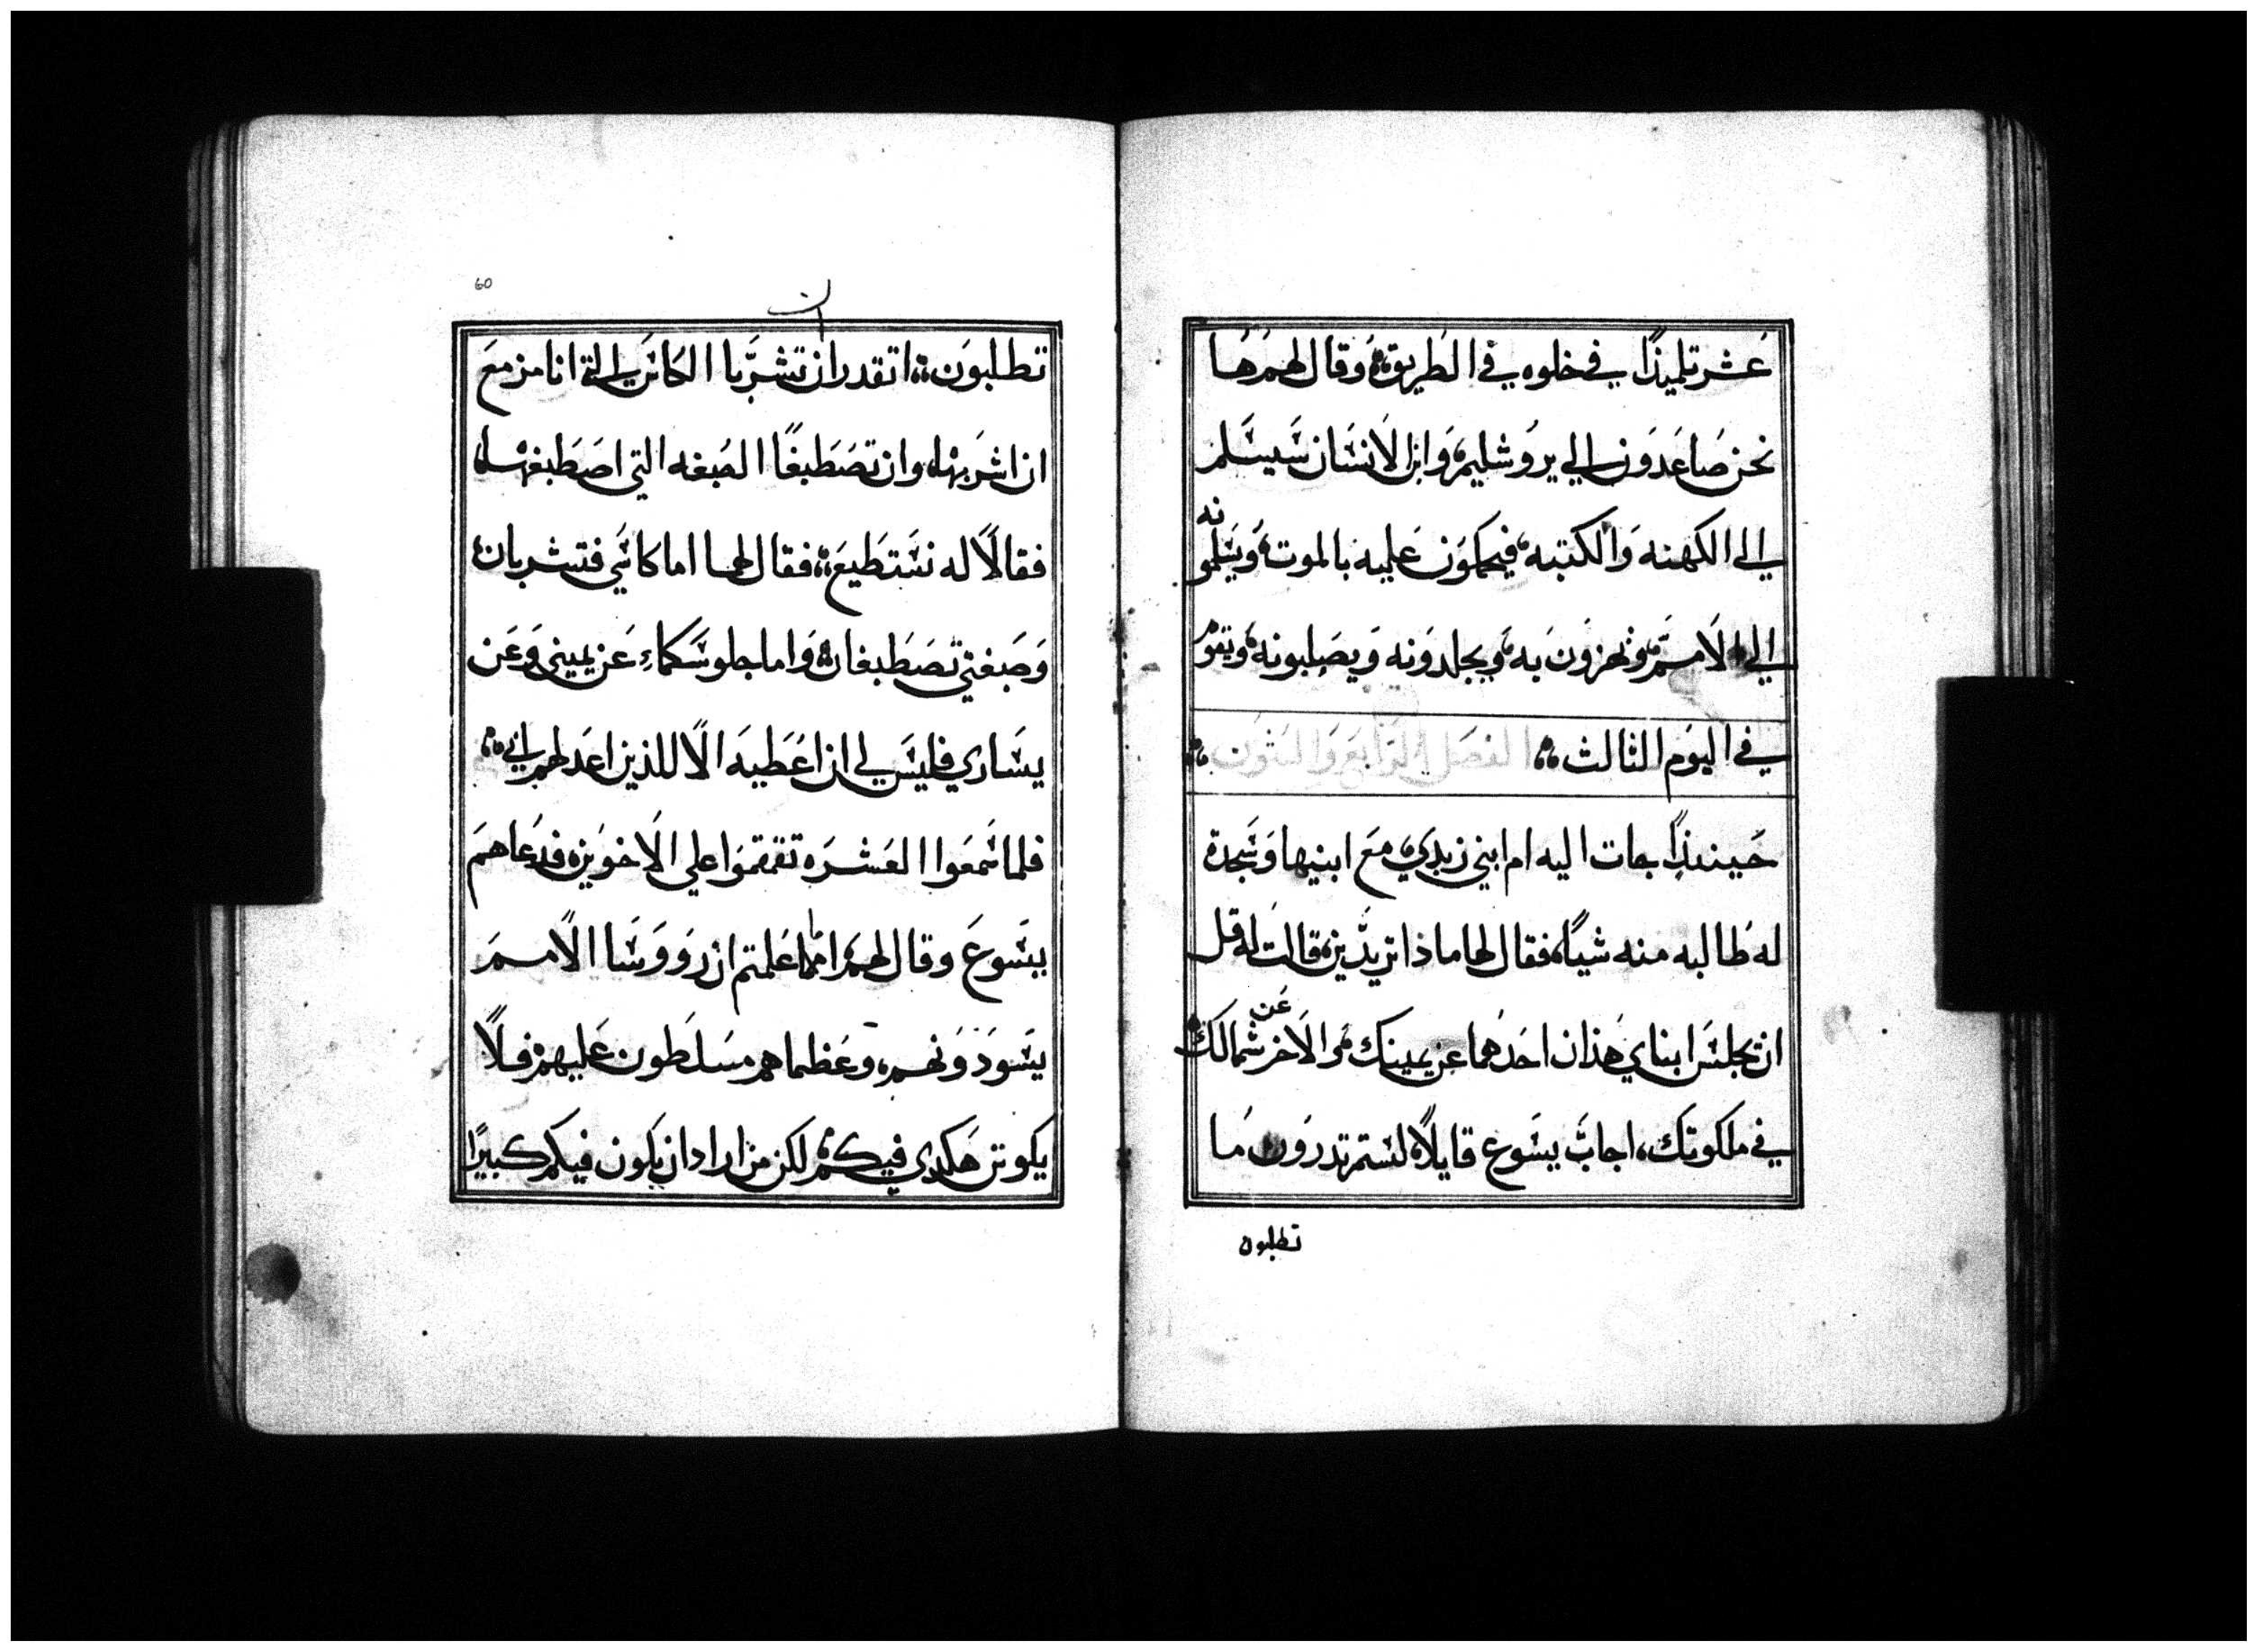 عشر تلميذًا في خلوه في الطريق، وقال لهم ها
نحن صاعدون الي يروشليم، وابن الانسان سيسلم
الي الكهنه والكتبه، فيحكمون عليه بالموت، ويسلمونه
الي الامم، ويهزون به، ويجلدونه ويصلبونه، ويقوم
في اليوم الثالث، الفصل الرابع والستون
حينيذًا جات اليه ام ابني زبدي، مع ابنيها وسجدة
له طالبه منه شيًا، فقال لها ماذا تريدين، قالت له قل
ان يجلس ابناي هذان احدهما عن يمينك والاخر عن شمالك
في ملكوتك، اجاب يسوع قايلًا، لستم تدرون ما
تطلبون
60
ان
تطلبون، اتقدران تشربا الكاس التي انا مزمع
ان اشربها، وان تصطبغا الصبغه التي اصطبغها
فقالا له نستطيع، فقال لهما اما كاسي فتشربان
وصبغتي تصطبغان، واما جلوسكما عن يميني وعن
يساري فليس لي ان اعطيه الا للذين اعد لهم
فلما سمعوا العشره تقمقموا علي الاخوين، فدعاهم
يسوع وقال لهم، اما علمتم ان رووسا الامم
يسودونهم، وعظماهم مسلطون عليهم، فلا
يكونن هكدي فيكم، لكن من اراد ان يكون فيكم كبيرًا